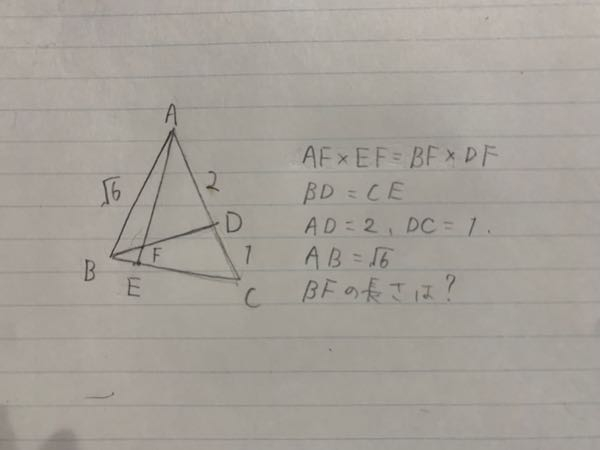 A
√6
2
D
F
1
B
E
C
AF×EF=BF×DF
BD=CE
AD=2、DC=1.
AB=√6
BFの長さは?